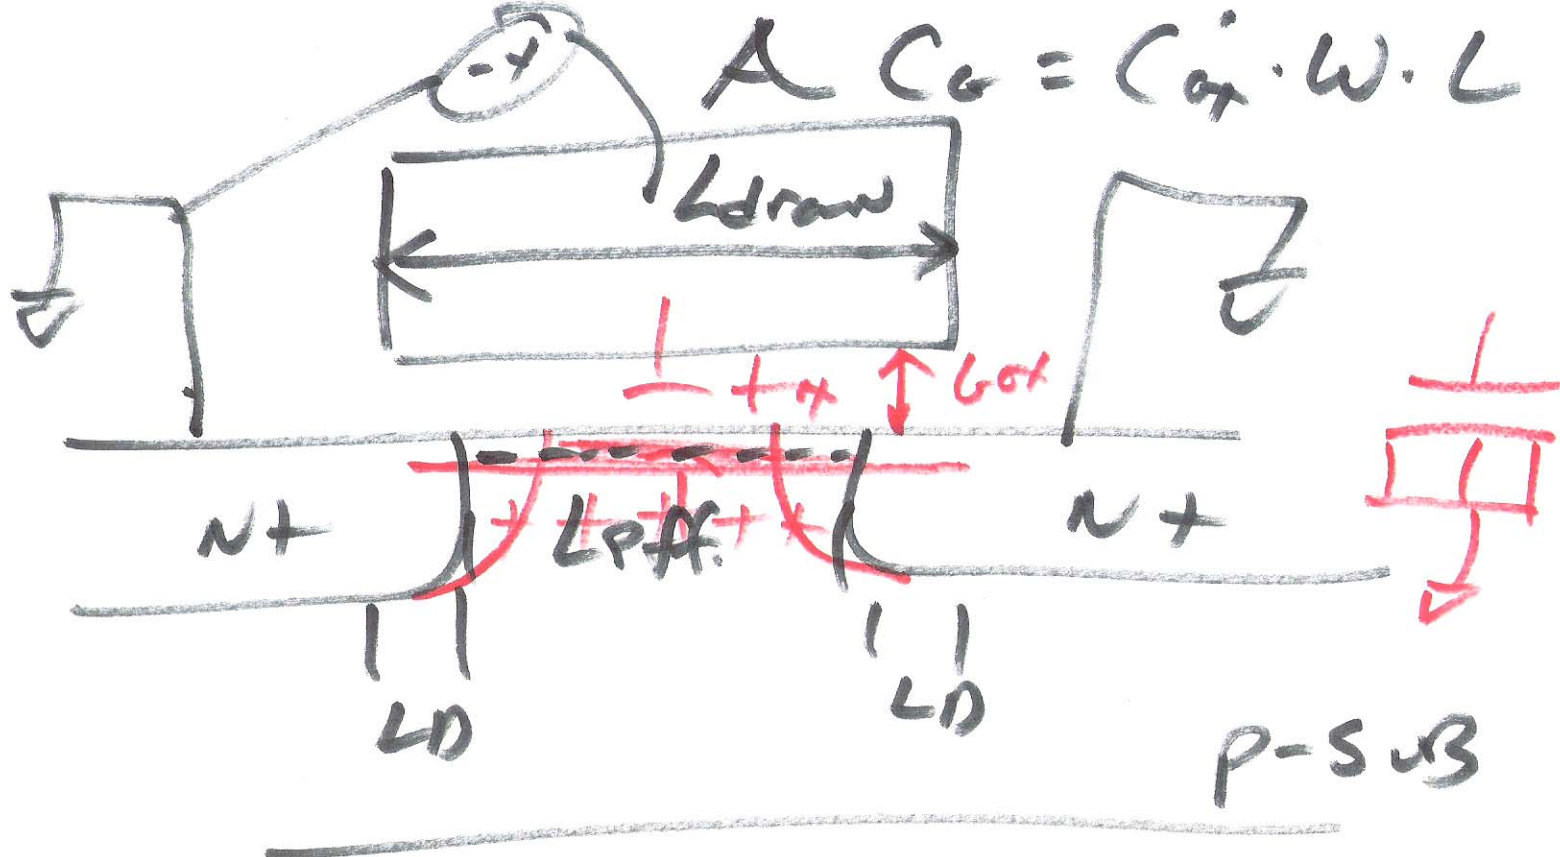 - + A CG = C'ox · W · L
Ldraw
tox
N+ Leff. N+
LD LD
P-SUB